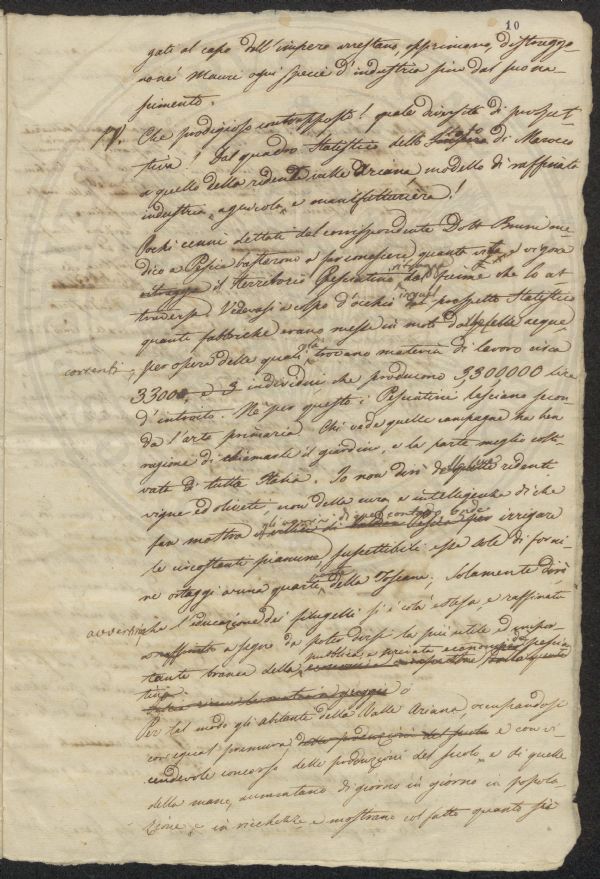 10
gati al capo dell'impero arrestano, opprimono, distruggo-
no né Mauri ogni specie d'industria fin dal suo na-
scimento.
17. Che prodigioso contrapposto! quale diversità di prospet-
tiva! Dal quadro Statistico dello Stato di Maroco
a quello della ridente valle Ariana modello di raffinata
industria agricola, e manifatturiera!
Pochi cenni dettati dal corrispondente Dott. me-
dico a Pescia basterono a far conoscere quanta vita e vigore
il territorio Pesciatino dal fiume che lo at-
traversa. Vedevasi a colpo d'occhio prospetto Statistico
quante fabbriche erano messe in moto dalle acque
correnti, per opera delle quali trovano materia di lavoro circa
3300, e 3 individui, che producono 3,300000 lire
d'introito. Né per questo i Pesciatini lasciano secon-
da l'arte primaria. Chi vede quelle campagne ha ben
ragione di chiamarle il giardino, e la parte meglio colti-
vata di tutta Italia. Io non dirò di quelle ridenti
vigne ed oliveti, non della cura, e intelligenza di che
fan mostra gli agricoltori di quel contado irrigare
le circostanti pianure, suscettibili esse sole di forni-
re ortaggi a una quarta della Toscana. Solamente dirò
che l'educazione de' filugelli si è colà estesa, e raffinata
a segno da poter dirsi la più utile ed impor-
tante branca della pubblica e privata economia pescia-
tina.
Per tal modo gli abitanti della Valle Ariana, occupandosi
con egual premura e con vi-
cendevole concorso delle produzioni del suolo e di quelle
della mano, aumentano di giorno in giorno in popola-
zione, e in ricchezze, e mostrano col fatto quanto sia